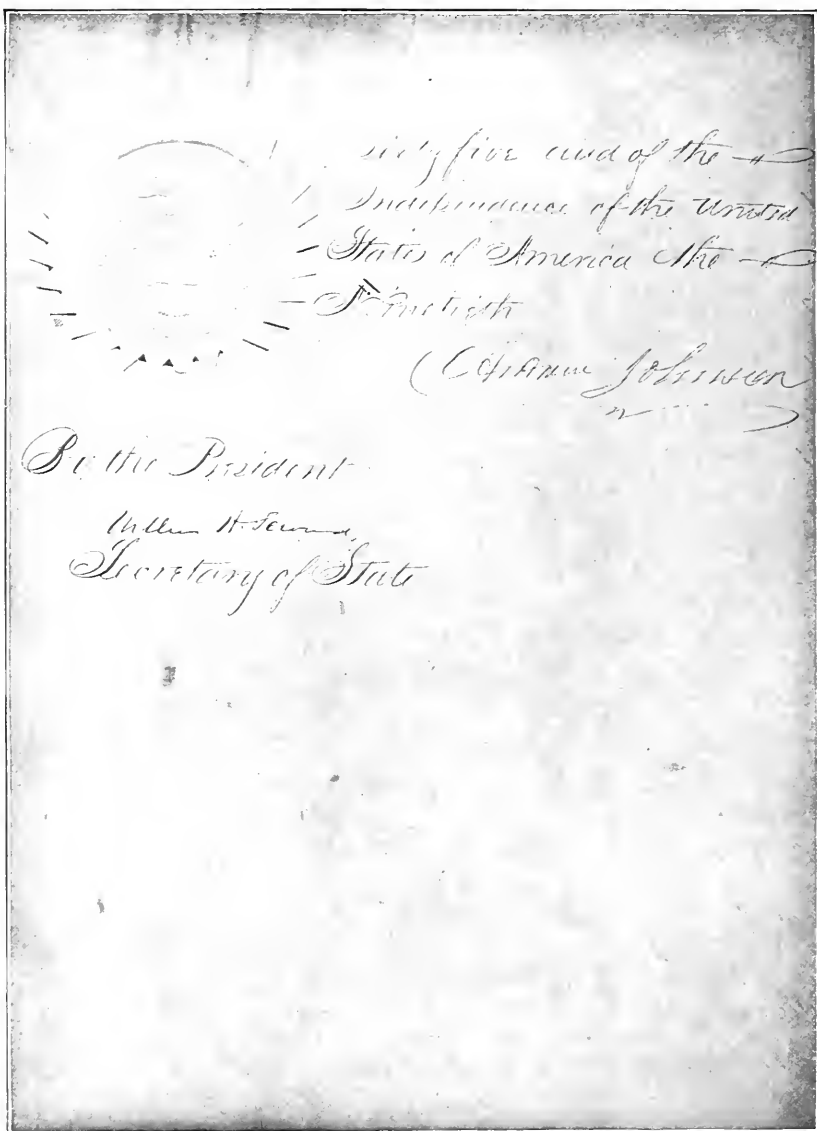 sixty five and of the
Independence of the United
States of America the
Ninetieth
Andrew Johnson
By the President
William H. Seward,
Secretary of State